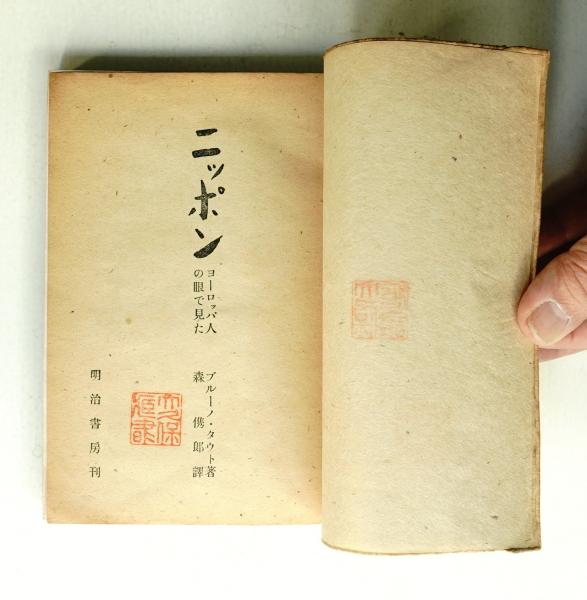 ニッポン
ヨーロッパ人
の眼で見た
ブルーノ・タウト著
森 儁郎 譯
明治書房刊